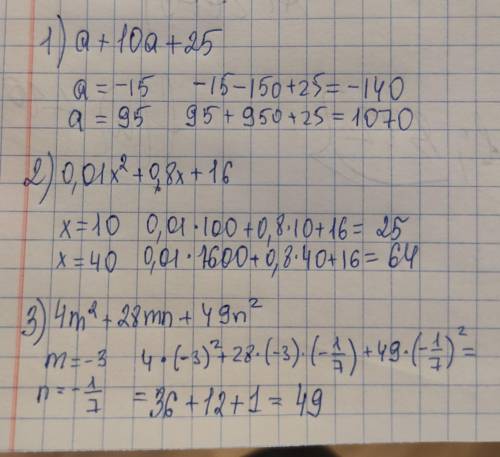 1) a + 10a + 25
a = -15 -15-150+25 = -140
a = 95 95+950+25 = 1070
2) 0,01x² + 0,8x + 16
x = 10 0,01·100+0,8·10+16 = 25
x = 40 0,01·1600+0,8·40+16 = 64
3) 4m² + 28mn + 49n²
m = -3 4·(-3)²+28·(-3)·(-1/7)+49·(-1/7)² =
n = -1/7 = 36 + 12 + 1 = 49